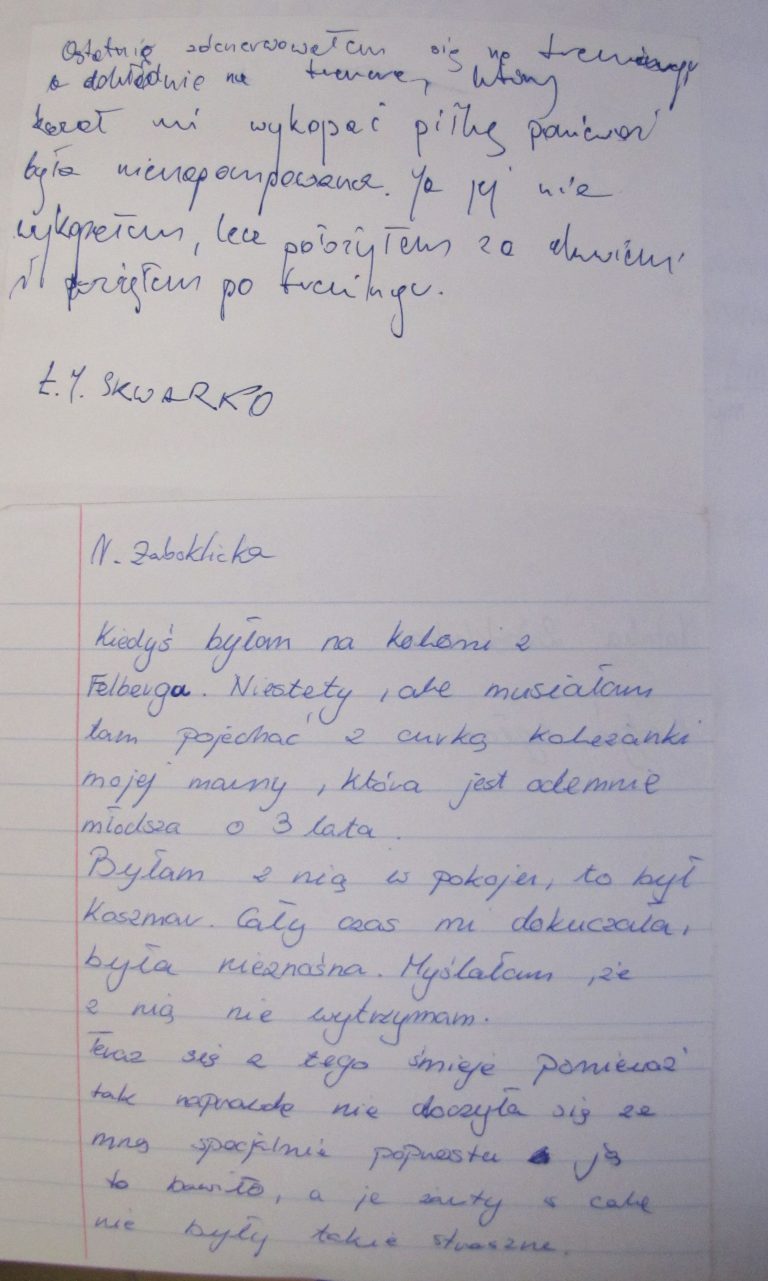 Ostatnio zdenerwowałem się na treningu
a dokładnie na trenera, który
kazał mi wykopać piłkę ponieważ
była nienapompowana. Ja jej nie
wykopałem, lecz położyłem za drzwiami
i wziąłem po treningu.
Ł.J. SKWARKO
N. Zaboklicka
Kiedyś byłam na koloni z
Felberga. Niestety, ale musiałam
tam pojechać z curką koleżanki
mojej mamy, która jest odemnie
młodsza o 3 lata.
Byłam z nią w pokoju, to był
Koszmar. Cały czas mi dokuczała,
była nieznośna. Myślałam, że
z nią nie wytrzymam.
Teraz się z tego śmieje ponieważ
tak naprawdę nie droczyła się ze
mną specjalnie poprostu ją
to bawiło, a jej żarty wcale
nie były takie straszne.